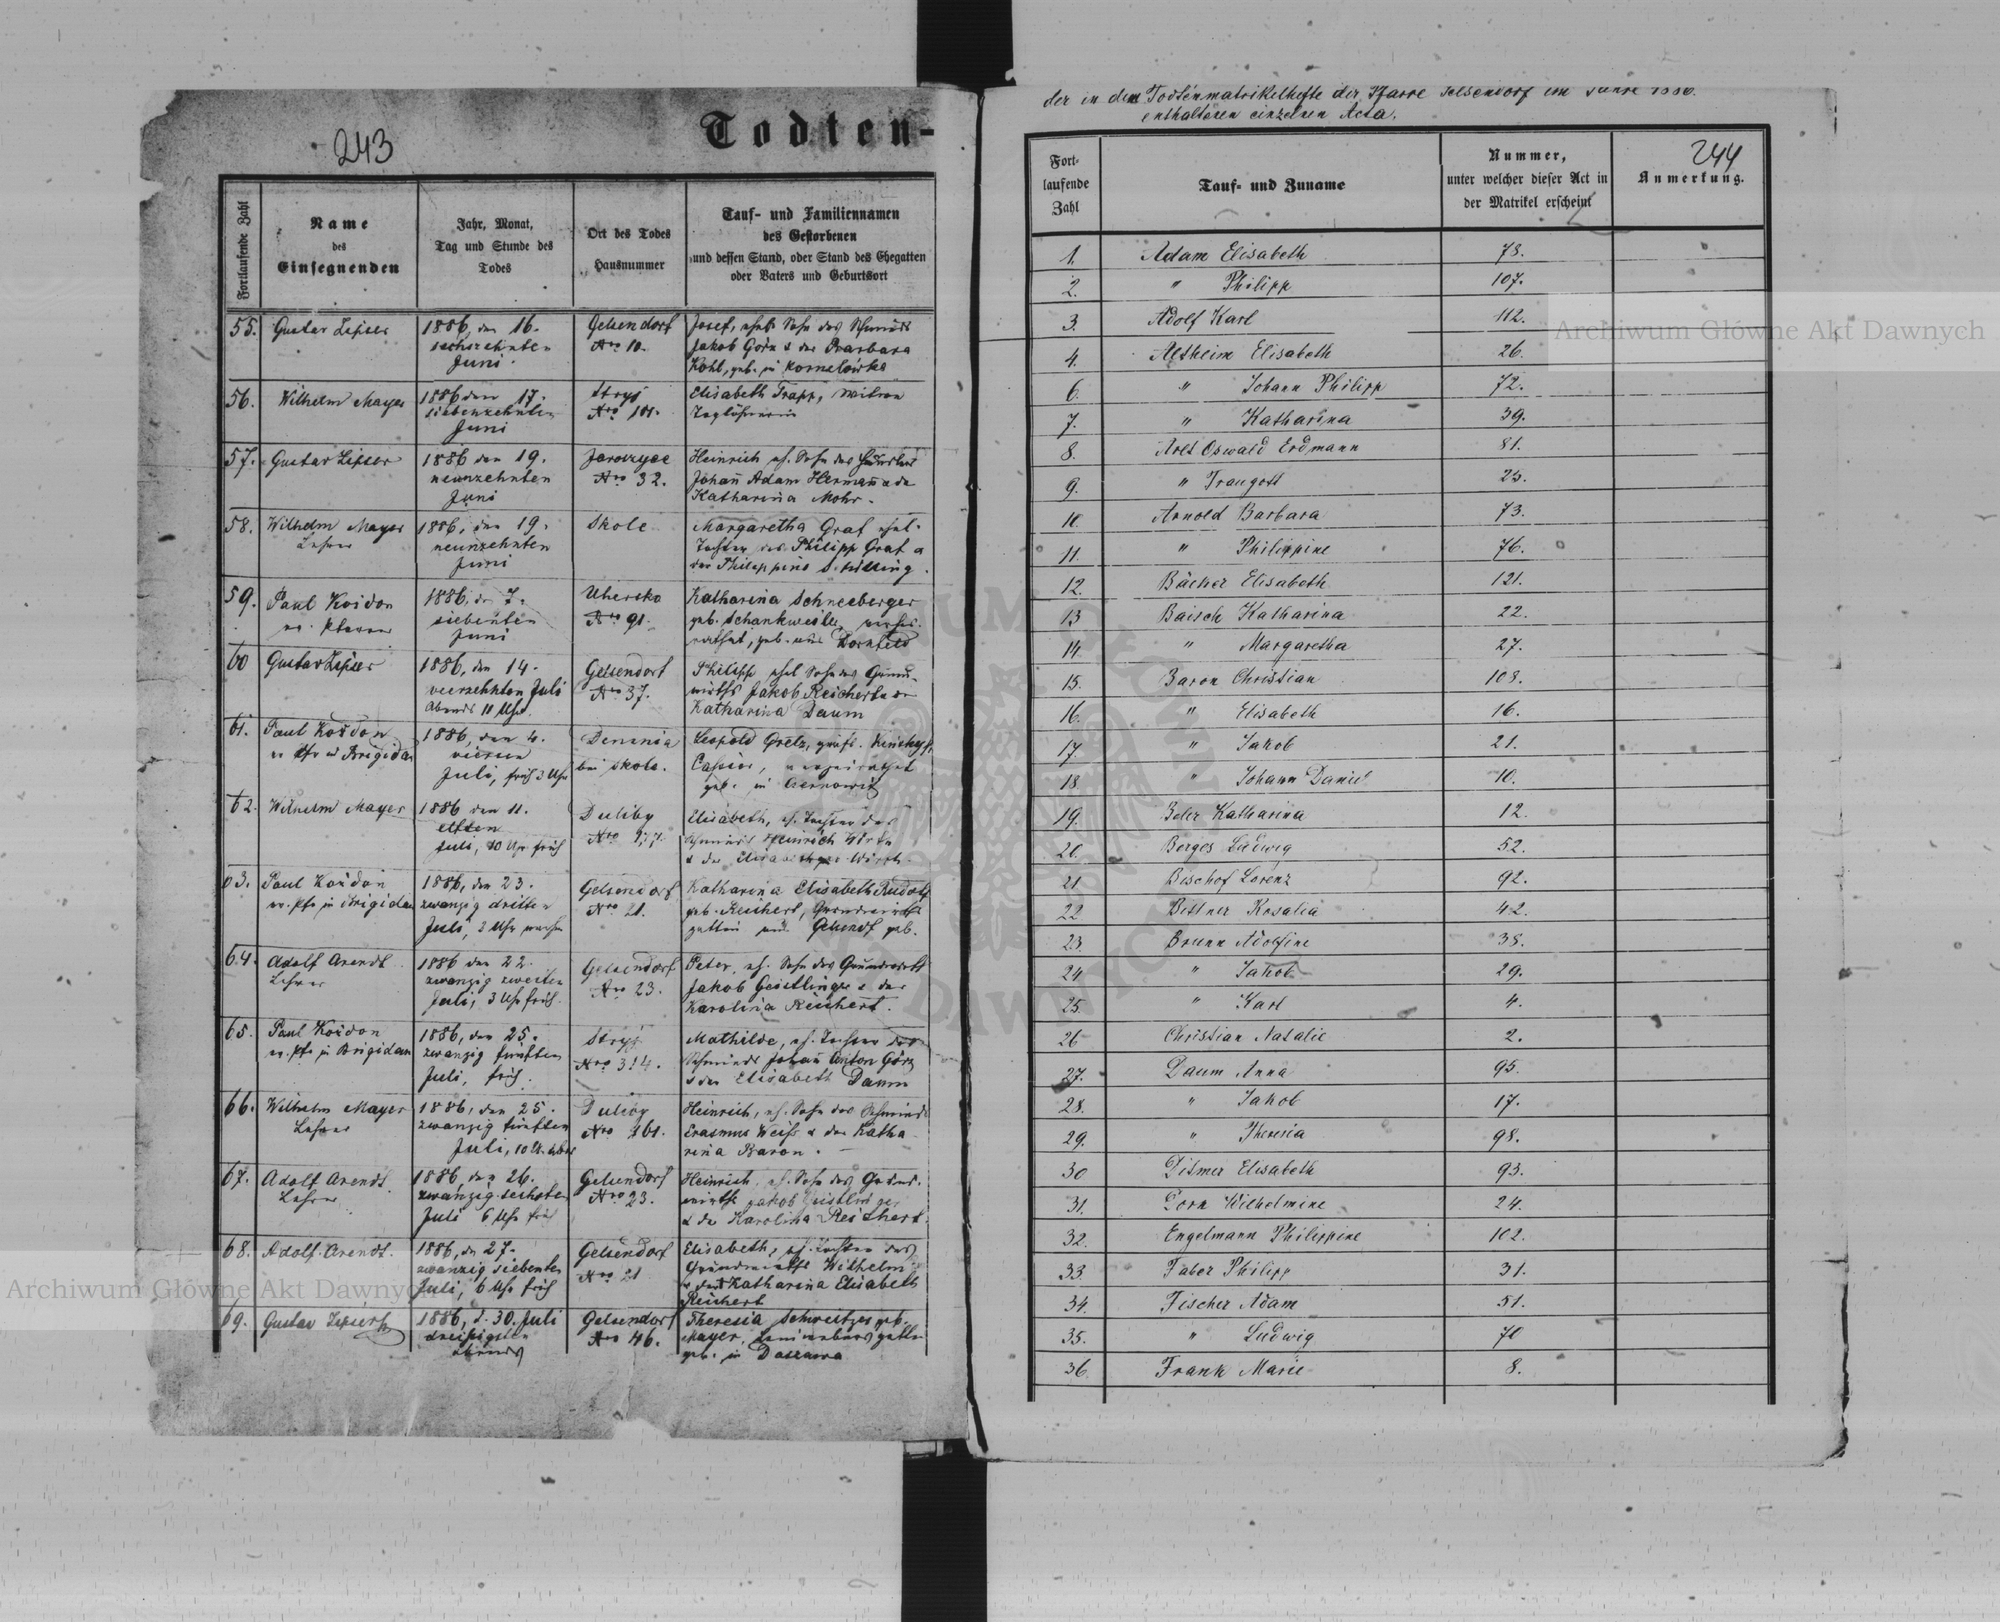 243
Todten-
Fortlaufende Zahl
Name
des
Einsegnenden
Jahr, Monat,
Tag und Stunde des
Todes
Ort des Todes
Hausnummer
Tauf- und Familiennamen
des Gestorbenen
und dessen Stand, oder Stand des Ehegatten
oder Vaters und Geburtsort
55. Gustav 1886, den 16. Gelsendorf Josef, ehel. Sohn des Schmieds
sechszehnten Nro 10. Jakob Görz & der Barbara
Juni. Kohl, geb. in Kornelówka
56. Wilhelm Mayer 1886 den 17. Stryj Elisabeth Trapp, Witwe
siebenzehnten Nro 101. Taglöhnerin
Juni
57. Gustav 1886 den 19. Nro 32. Heinrich eh. Sohn des
neunzehnten Johañ Adam Hermañ & der
Juni Katharina Mohr.
58. Wilhelm Mayer 1886, den 19. Skole Margaretha Graf ehel.
Lehrer neunzehnten Tochter des Philipp Graf &
Juni der Philippine Schilling.
59. Paul Kozdon 1886, den 7. Uhersko Katharina Schneeberger
siebenten Nro 91. geb. Schankweiler,
Juni Dornfeld
60 Gustav 1886, den 14. Gelsendorf Philipp ehel. Sohn des Grund-
vierzehnten Juli Nro 37. wirths Jakob Reichert u. der
Abends 11 Uhr. Katharina Daum
61. Paul Kozdon 1886, den 4. Demnia Leopold
Brigidau vierten bei Skole.
Juli, früh 3 Uhr geb. in Czernowitz
62. Wilhelm Mayer 1886 den 11. Duliby Elisabeth, eh. Tochter des
elften Nro 177. Schmieds Heinrich Wirth
Juli, 10 Uhr früh & der Elisabeth geb. Wirth.
63. Paul Kozdon 1886, den 23. Gelsendorf Katharina Elisabeth Rudolf
ev. Pfr in Brigidau zwanzig dritten Nro 21. geb. Reichert, Grundwirths
Juli, 2 Uhr gattin geb.
64. Adolf Arendt 1886 den 22. Gelsendorf Peter, eh. Sohn des Grundwirths
Lehrer zwanzig zweiten Nro 23. Jakob Geistlinger & der
Juli, 3 Uhr früh. Karolina Reichert.
65. Paul Kozdon 1886, den 25. Stryj Mathilde, eh. Tochter des
ev. Pfr in Brigidau zwanzig fünften Nro 314. Schmieds Johañ Anton Görz
Juli, früh. & der Elisabeth Daum
66. Wilhelm Mayer 1886, den 25. Duliby Heinrich, eh. Sohn des Schmieds
Lehrer zwanzig fünften Nro 161. Erasmus Weiß & der Katha-
Juli, 10 U. rina Baron.
67. Adolf Arendt 1886, den 26. Gelsendorf Heinrich, eh. Sohn des Grund-
Lehrer zwanzig sechsten Nro 23. wirths Jakob Geistlinger
Juli 6 Uhr früh & der Karolina Reichert.
68. Adolf Arendt. 1886, den 27. Gelsendorf Elisabeth, eh. Tochter des
zwanzig siebenten Nro 21 Grundwirths Wilhelm
Juli, 6 Uhr früh Katharina Elisabeth
Reichert
69. Gustav 1886, d. 30. Juli Gelsendorf Theresia Schweitzer geb.
dreißigsten Nro 46. Mayer,
abends geb. in Daszawa
der in dem Todtenmatrikelhefte der Pfarre Gelsendorf im Jahre 1886.
enthaltenen einzelnen Acta.
244
Fort-
laufende
Zahl
Tauf- und Zuname
Nummer,
unter welcher dieser Act in
der Matrikel erscheint
Anmerkung.
1. Adam Elisabeth 78.
2. " Philipp 107.
3. Adolf Karl 112.
4. Altheim Elisabeth 26.
6. " Johann Philipp 72.
7. " Katharina 39.
8. Arlt Oswald Erdmann 81.
9. " Traugott 25.
10. Arnold Barbara 73.
11. " Philippine 76.
12. Bücher Elisabeth 121.
13 Baisch Katharina 22.
14 " Margaretha 27.
15. Baron Christian 108.
16. " Elisabeth 16.
17. " Jakob 21.
18. " Johann Daniel 10.
19. Beler Katharina 12.
20. Berges Ludwig 52.
21 Bischof Lorenz 92.
22 Bittner Rosalia 42.
23. Brunn Adolfine 38.
24 " Jakob 29.
25. " Karl 4.
26 Christian Natalie 2.
27. Daum Anna 95.
28. " Jakob 17.
29. " Theresia 98.
30 Ditmer Elisabeth 93.
31. Dorn Wilhelmine 24.
32. Engelmann Philippine 102.
33. Faber Philipp 31.
34. Fischer Adam 51.
35. " Ludwig 70
36 Frank Marie 8.
Archiwum Główne Akt Dawnych
Archiwum Główne Akt Dawnych